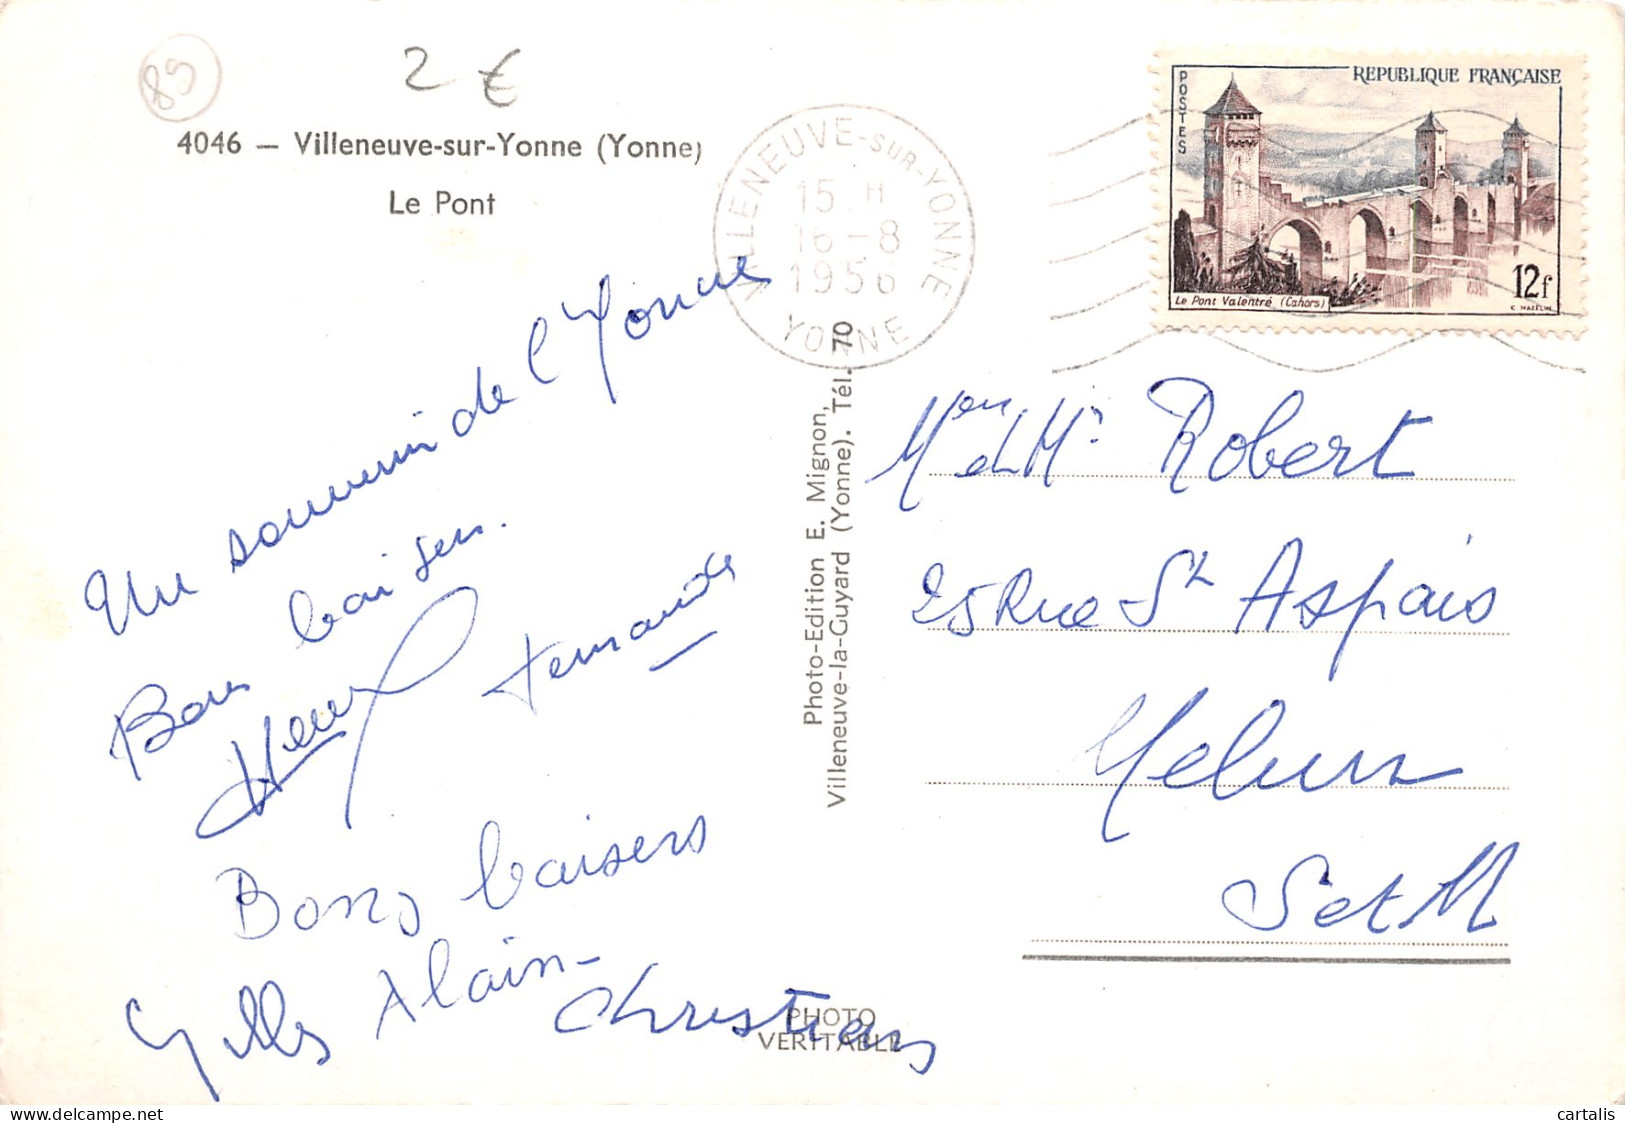 89
2 €
4046 — Villeneuve-sur-Yonne (Yonne)
Le Pont
VILLENEUVE-SUR-YONNE
15 H
16-8
1956
YONNE
POSTES
REPUBLIQUE FRANÇAISE
Le Pont Valentré (Cahors)
12f
C. MAZELIN
Un souvenir de l'Yonne
Bons baisers.
Fernande
Bons baisers
Gilles Alain-
Christian
Photo-Edition E. Mignon,
Villeneuve-la-Guyard (Yonne). Tél. 70
PHOTO
VERITABLE
Mme et Mr Robert
25 Rue St Aspais
Melun
S et M
cartalis